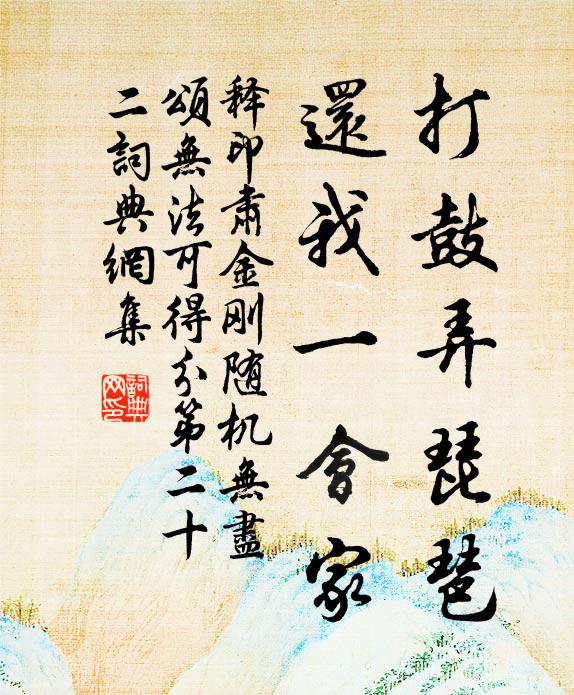 打鼓弄琵琶
還我一會家
释印肃金刚随机無盡
頌無法可得分第二十
二詞典網集
詞典
网印